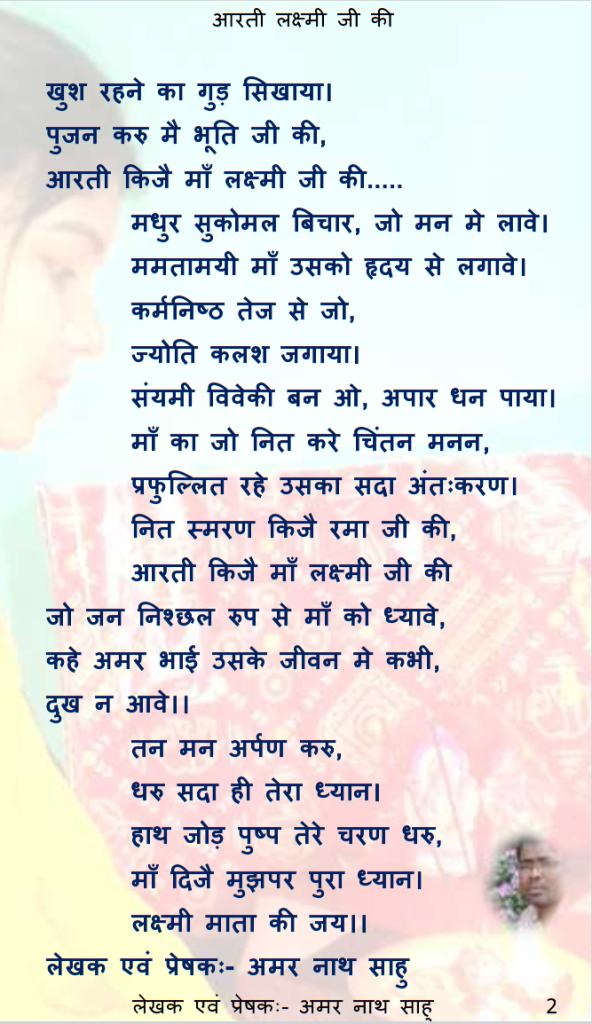 आरती लक्ष्मी जी की
खुश रहने का गुड़ सिखाया।
पुजन करु मै भूति जी की,
आरती किजै माँ लक्ष्मी जी की.....
मधुर सुकोमल बिचार, जो मन मे लावे।
ममतामयी माँ उसको हृदय से लगावे।
कर्मनिष्ठ तेज से जो,
ज्योति कलश जगाया।
संयमी विवेकी बन ओ, अपार धन पाया।
माँ का जो नित करे चिंतन मनन,
प्रफुल्लित रहे उसका सदा अंतःकरण।
नित स्मरण किजै रमा जी की,
आरती किजै माँ लक्ष्मी जी की
जो जन निश्छल रुप से माँ को ध्यावे,
कहे अमर भाई उसके जीवन मे कभी,
दुख न आवे।।
तन मन अर्पण करु,
धरु सदा ही तेरा ध्यान।
हाथ जोड़ पुष्प तेरे चरण धरु,
माँ दिजै मुझपर पुरा ध्यान।
लक्ष्मी माता की जय।।
लेखक एवं प्रेषकः- अमर नाथ साहु
लेखक एवं प्रेषकः- अमर नाथ साहु 2